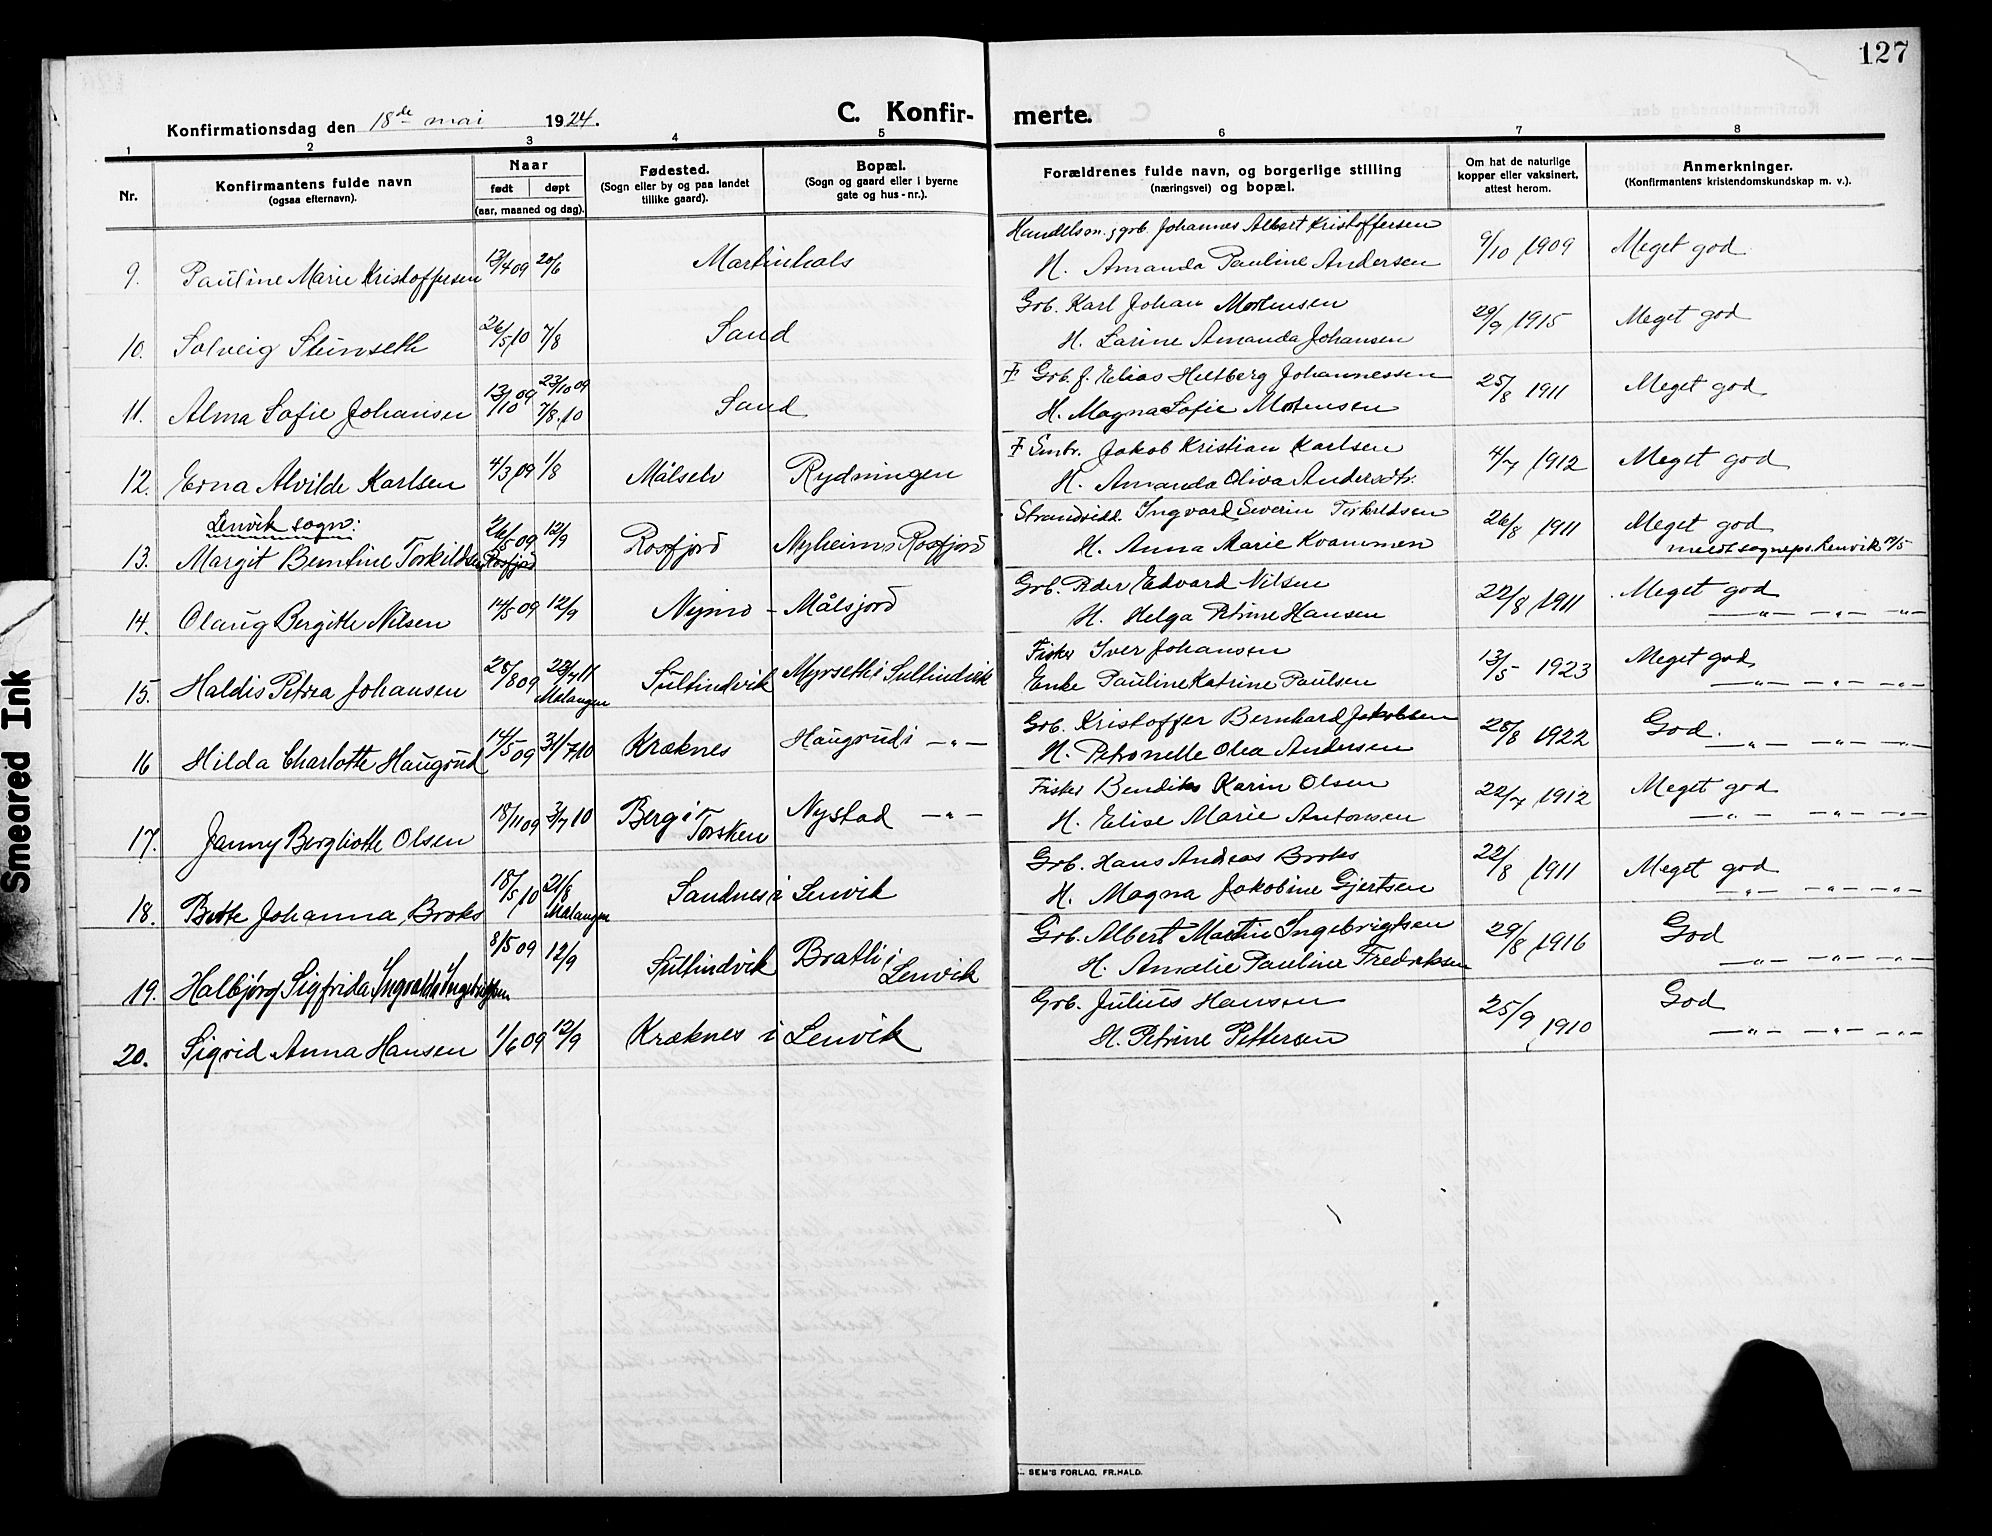 127
Konfirmationsdag den 18de mai 1924.
C. Konfirmerte.
1 2 3 4 5 6 7 8
Nr.
Konfirmantens fulde navn
(ogsaa efternavn).
Naar
født døpt
(aar, maaned og dag).
Fødested.
(Sogn eller by og paa landet
tillike gaard).
Bopæl.
(Sogn og gaard eller i byerne
gate og hus-nr.).
Forældrenes fulde navn, og borgerlige stilling
(næringsvei) og bopæl.
Om hat de naturlige
kopper eller vaksinert,
attest herom.
Anmerkninger.
(Konfirmantens kristendomskundskap m. v.).
9. Pauline Marie Kristoffersen 13/4 09 20/6 Martinhals
Handelsm. & grb. Johannes Albert Kristoffersen
H. Amanda Pauline Andersen
9/10 1909 Meget god
10. Solveig Steinseth 26/5 10 7/8 Sand
Grb. Karl Johan Mortensen
H. Larine Amanda Johansen
29/9 1915 Meget god
11. Alma Sofie Johansen 13/10 09 23/10 09
7/8 10 Sand
Grb. f. Elias Heltberg Johannessen
H. Magna Sofie Mortensen
25/8 1911 Meget god
12. Erna Alvilde Karlsen 4/3 09 1/8 Målselv Rydningen
Smbr. Jakob Kristian Karlsen
H. Amanda Oliva Andersdtr.
4/7 1912 Meget god
Lenvik sogn:
13. Margit Berntine Torkildsen 26/5 09 12/9 Rosfjord Nyheim i Rosfjord
Rosfjord
Strandsidd. Ingvard Severin Torkildsen
H. Anna Marie Kvammen
26/8 1911 Meget god
meldt sognepr. Lenvik 19/5
14. Olaug Bergitte Nilsen 14/5 09 12/9 Nymo - Målsjord
Grb. Peder Edvard Nilsen
H. Helga Petrine Hansen
22/8 1911 Meget god
—"— —"— —"—
15. Haldis Petrea Johansen 28/8 09 23/7 11 Sultindvik Myrseth i Sultindvik
Malangen
Fisker Iver Johansen
Enke Pauline Katrine Paulsen
13/5 1923 Meget god
—"— —"— —"—
16 Hilda Charlotte Haugrud 14/5 09 31/7 10 Kræknes Haugrud i —"—
Grb. Kristoffer Bernhard Jakobsen
H. Petronelle Olea Andersen
28/8 1922 God.
—"— —"— —"—
17. Jenny Bergliotte Olsen 18/11 09 31/7 10 Berg i Torsken Nystad —"—
Fisker Bendiks Karin Olsen
H. Elise Marie Antonsen
22/7 1912 Meget god
—"— —"— —"—
18. Bitte Johanna Broks 18/5 10 21/8 Sandnes i Lenvik
Malangen
Grb. Hans Andreas Broks
H. Magna Jakobine Gjertsen
22/8 1911 Meget god
—"— —"— —"—
19. Halbjørg Sigfrida Ingvalda Ingebrigtsen 8/5 09 12/9 Sultindvik Bratli i Lenvik
Grb. Albert Martin Ingebrigtsen
H. Amalie Pauline Fredriksen
29/8 1916 God
—"— —"— —"—
20. Sigrid Anna Hansen 1/6 09 12/9 Kræknes i Lenvik
Grb. Julius Hansen
H. Petrine Pettersen
25/9 1910 God
—"— —"— —"—
SEM'S FORLAG, FR.HALD.
Smeared Ink